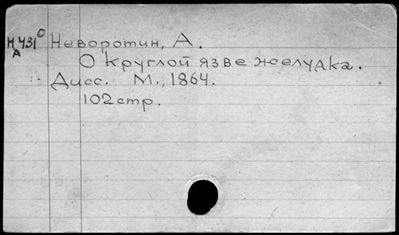 М 431° Неворотин, А.
А О круглой язве желудка.
Дисс. М., 1864.
102 стр.